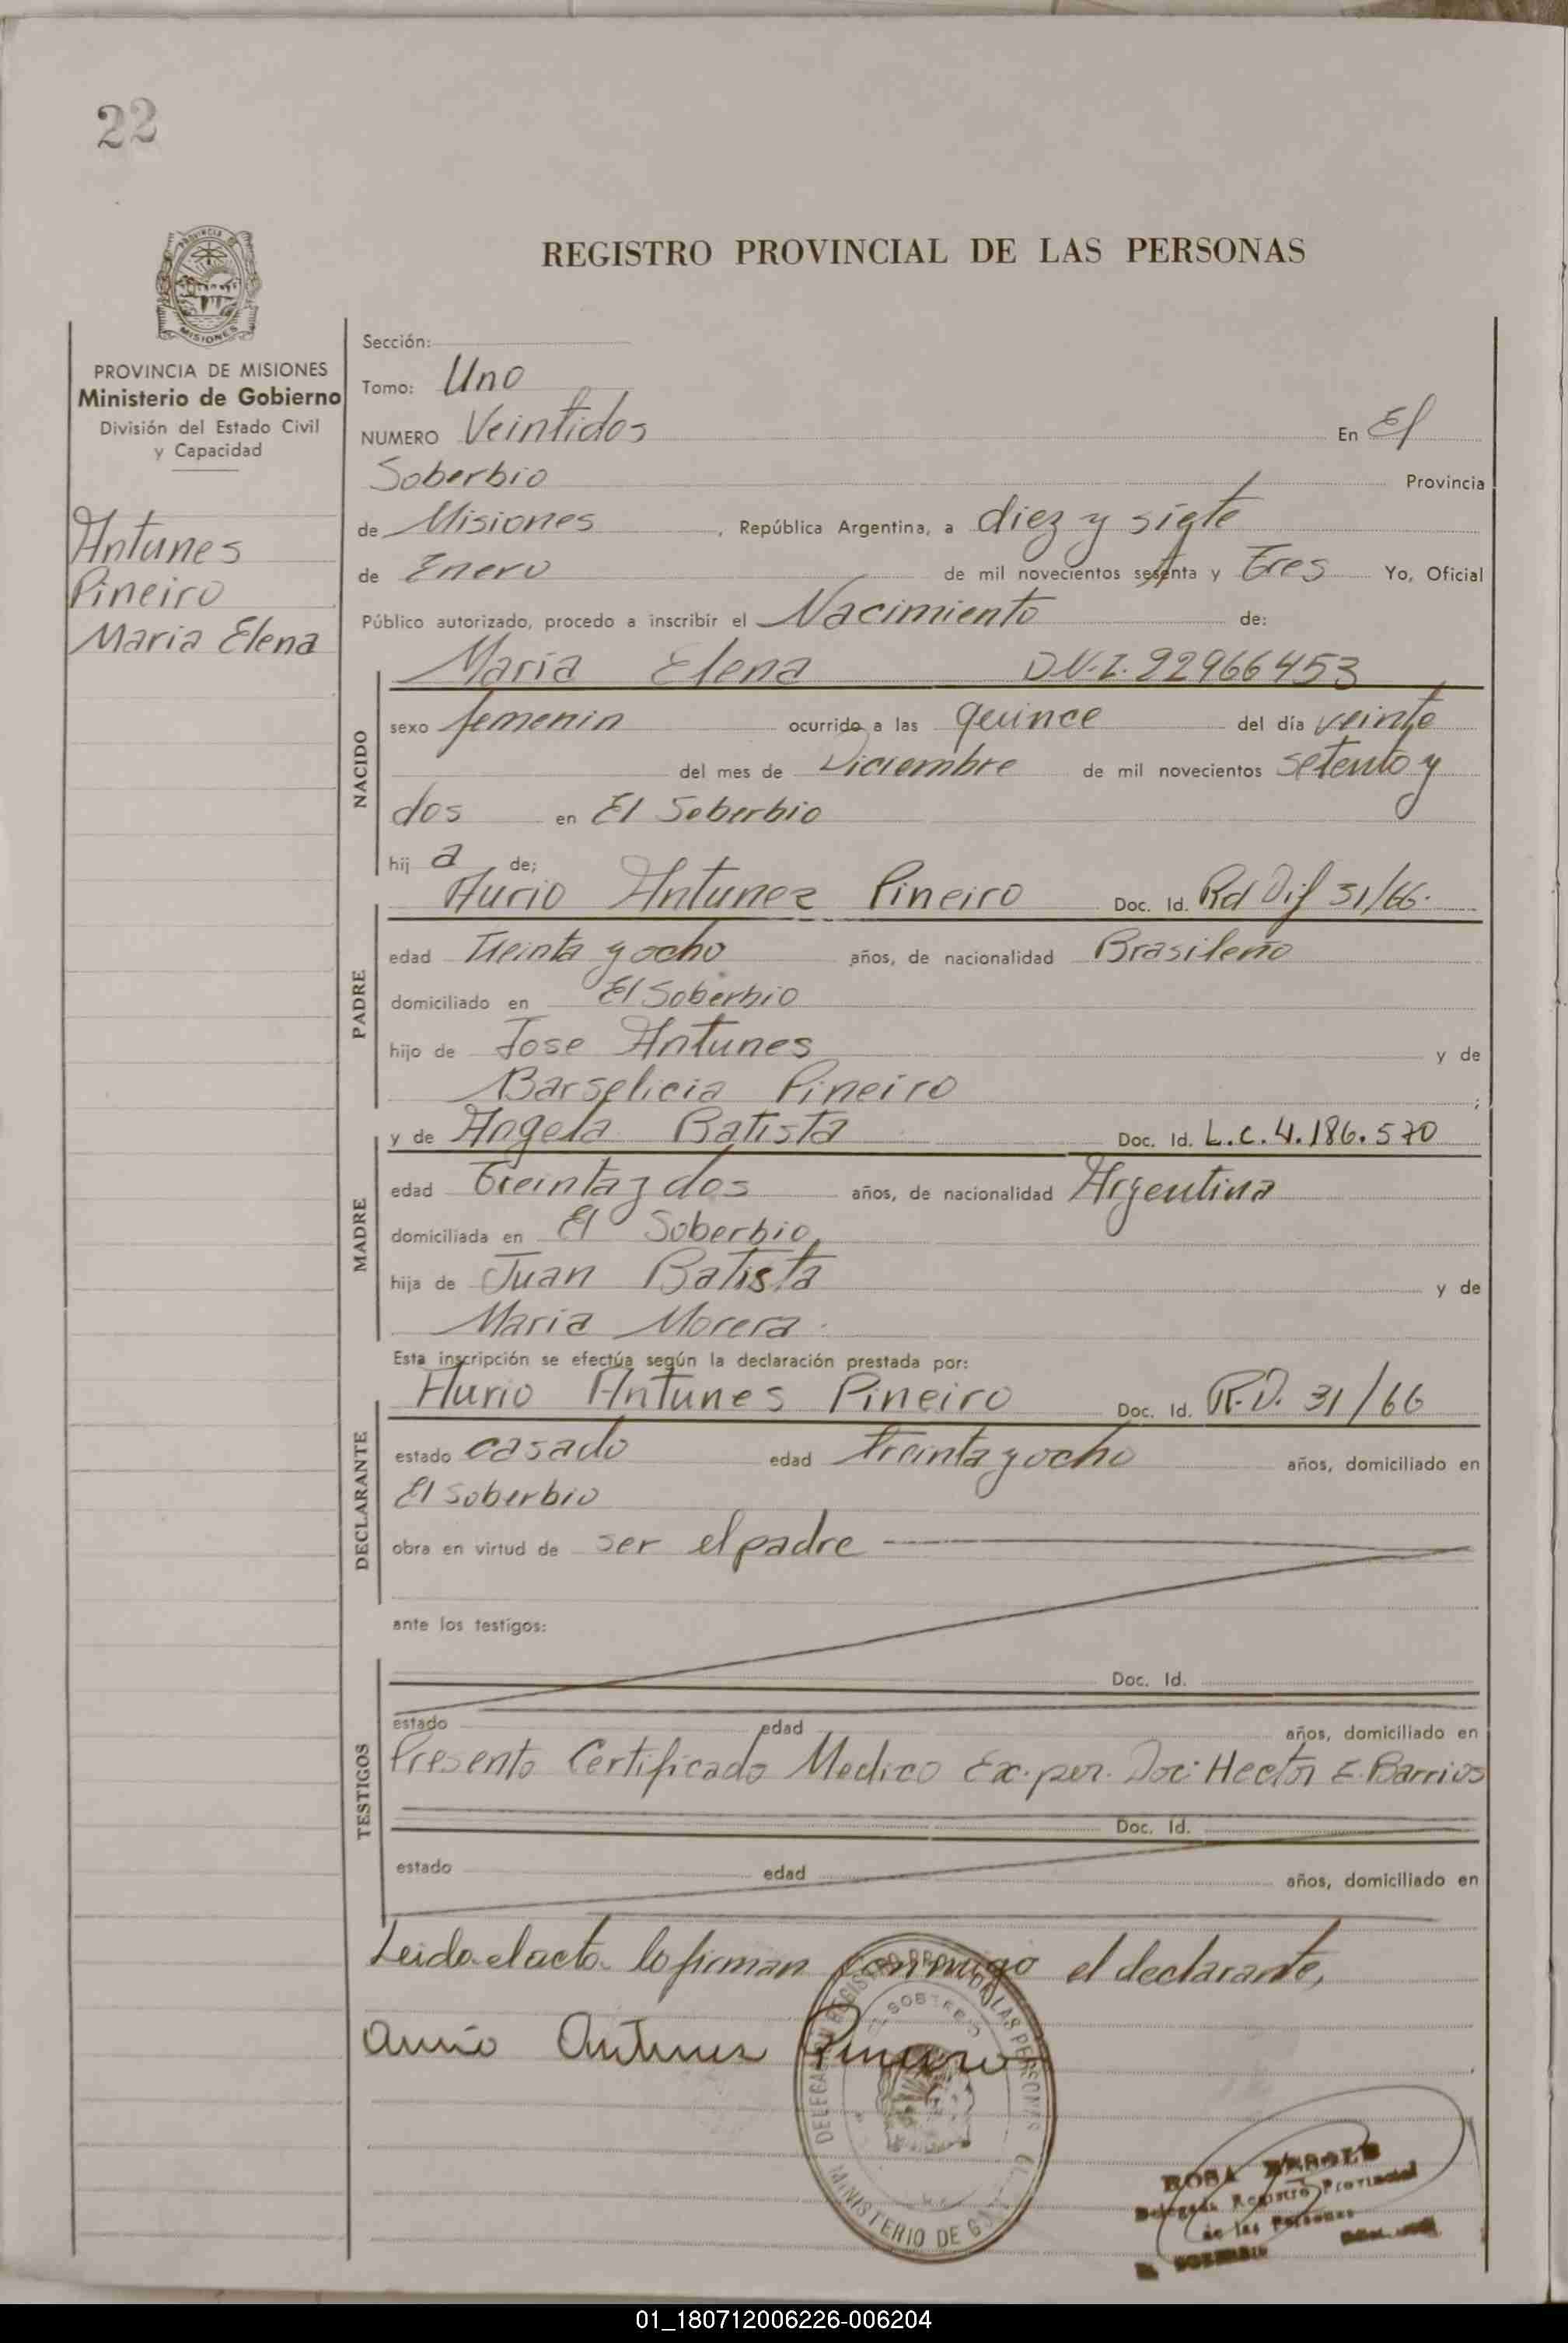 22
REGISTRO PROVINCIAL DE LAS PERSONAS
MISIONES
PROVINCIA DE MISIONES
Ministerio de Gobierno
División del Estado Civil
y Capacidad
Antunes
Pineiro
Maria Elena
Sección:
Tomo: Uno
NUMERO Veintidos En El
Soberbio Provincia
de Misiones, República Argentina, a diez y siete
de Enero de mil novecientos sesenta y Tres Yo, Oficial
Público autorizado, procedo a inscribir el Nacimiento de:
NACIDO
Maria Elena D.N.I. 22966453
sexo femenin ocurrido a las quince del día veinte
del mes de Diciembre de mil novecientos setenta y
dos en El Soberbio
hij a de;
PADRE
Aurio Antunez Pineiro Doc. Id. Rd Dif 31/66.
edad Treinta y ocho años, de nacionalidad Brasileño
domiciliado en El Soberbio
hijo de Jose Antunes y de
Barselicia Pineiro ;
MADRE
y de Angela Batista Doc. Id. L.C. 4.186.570
edad Treinta y dos años, de nacionalidad Argentina
domiciliada en El Soberbio
hija de Juan Batista y de
Maria Morera.
Esta inscripción se efectúa según la declaración prestada por:
DECLARANTE
Aurio Antunes Pineiro Doc. Id. R.D. 31/66
estado casado edad treinta y ocho años, domiciliado en
El Soberbio
obra en virtud de ser el padre
ante los testigos:
TESTIGOS
Doc. Id.
estado edad años, domiciliado en
Presento Certificado Medico Ex. per. Doc: Hector E. Barrios
Doc. Id.
estado edad años, domiciliado en
Leida el acta lo firman conmigo el declarante,
Aurio Antunez Pineiro
MINISTERIO DE
ROSA
Delegada Registro Provincial
de las Personas
01_180712006226-006204